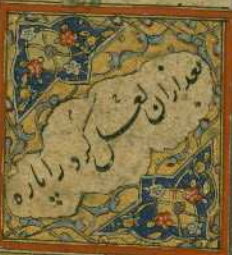 بعد ازان لعل کرد در اپاره